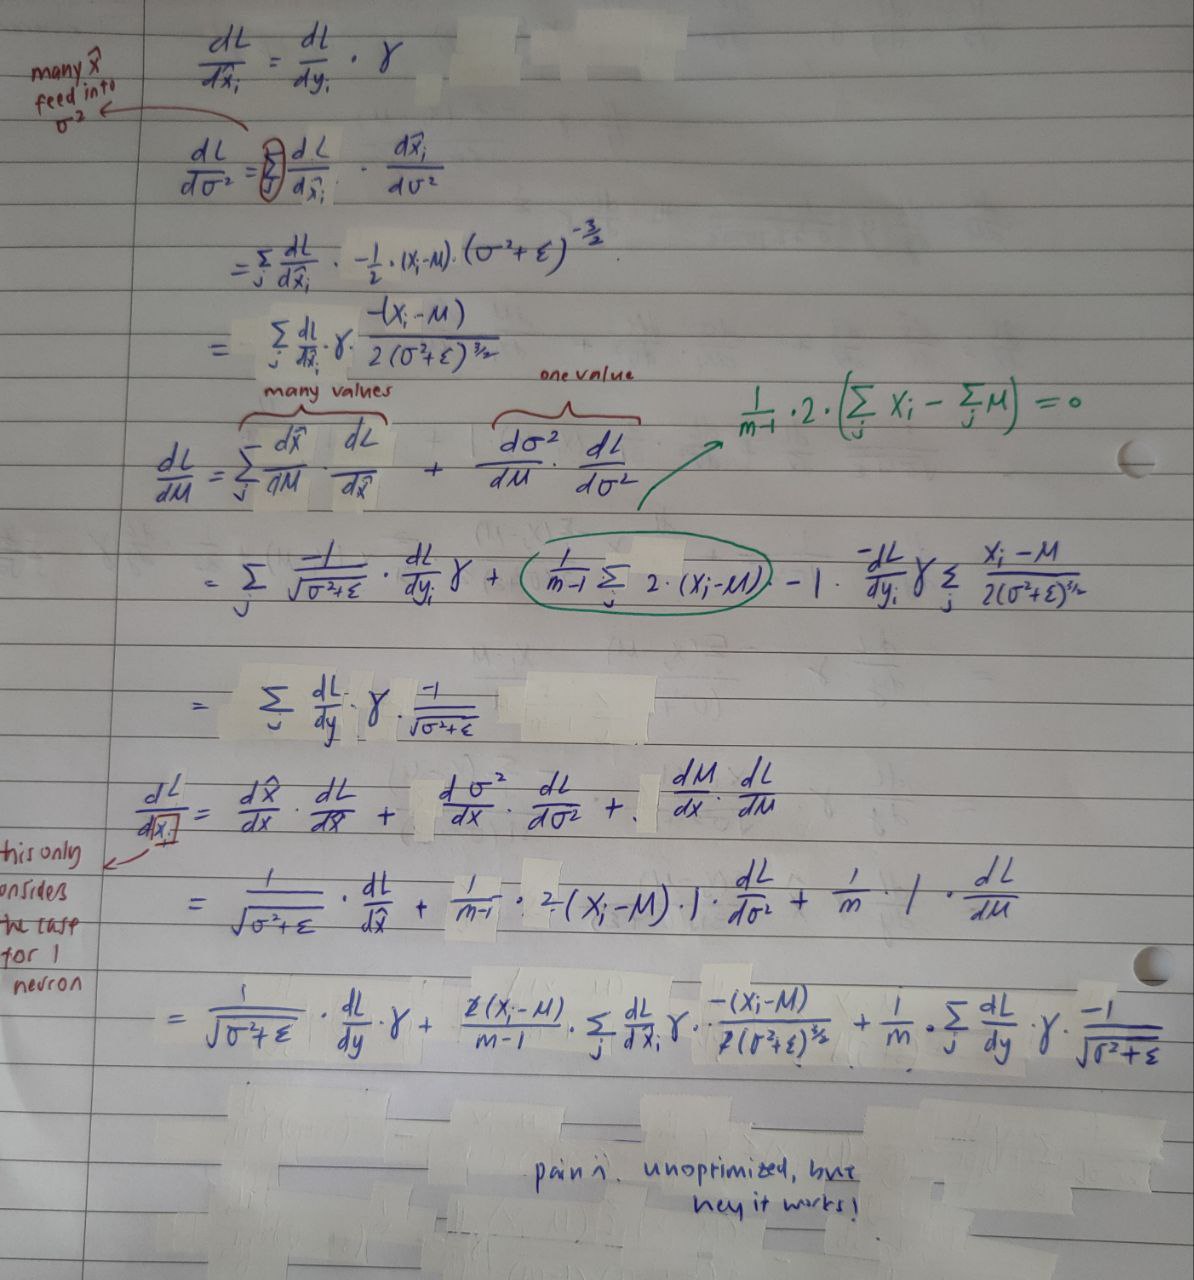 dL/dx̂ᵢ = dL/dyᵢ · γ
many x̂
feed into
σ²
dL/dσ² = Σⱼ dL/dx̂ᵢ · dx̂ᵢ/dσ²
= Σⱼ dL/dx̂ᵢ · -1/2 · (xᵢ-M) · (σ²+ε)^(-3/2)
= Σⱼ dL/dx̂ᵢ · γ · -(xᵢ-M)/2(σ²+ε)^(3/2)
many values
one value
1/m-1 · 2 · (Σⱼ xᵢ - Σⱼ M) = 0
dL/dM = Σⱼ dx̂/dM · dL/dx̂ + dσ²/dM · dL/dσ²
= Σⱼ -1/√σ²+ε · dL/dyᵢ γ + 1/m-1 Σⱼ 2·(xᵢ-M) · -1 · -dL/dyᵢ γ Σⱼ xᵢ-M/2(σ²+ε)^(3/2)
= Σⱼ dL/dy · γ · -1/√σ²+ε
dL/dxᵢ = dx̂/dx · dL/dx̂ + dσ²/dx · dL/dσ² + dM/dx · dL/dM
his only
onsiders
he case
for 1
neuron
= 1/√σ²+ε · dL/dx̂ + 1/m-1 · 2·(xᵢ-M)·1 · dL/dσ² + 1/m · 1 · dL/dM
= 1/√σ²+ε · dL/dy · γ + 2(xᵢ-M)/m-1 · Σⱼ dL/dx̂ᵢ γ · -(xᵢ-M)/2(σ²+ε)^(3/2) + 1/m · Σⱼ dL/dy · γ · -1/√σ²+ε
pain :). unoptimized, but
hey it works!